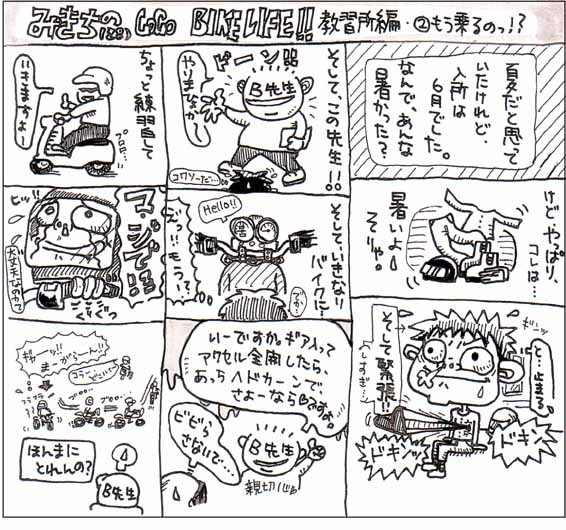 みきちの GOGO BIKE LIFE!! 教習所編・②もう乗るのっ!?
夏だと思って
いたけれど、
入所は
6月でした。
なんで、あんな
暑かった?
けど やっぱり、
コレは…
暑いよ
てりゃ。
ギュッ
と、止まる。
そして緊張!!
しすぎ…
ドキンッ
ドキンッ
そして、この先生!!
ドーン
B先生
やりまっせかー
コワソーだ…
そして、いきなり
バイクに!
Hello!!
えっ!! もう?
いーですか。ギア入って
アクセル全開したら、
あっちヘドカーンで、
さよーならBですよ。
ビビら
さないで…
B先生
親切心
ちょっと練習して
いきますよー
プロロ…
マジで!?
ビッ!!
大丈夫なのか?
ギャーッ!!
まーがらーん!!
コラーどこいく
フラフラ
ブロロー
ほんまに
とれんの?
B先生